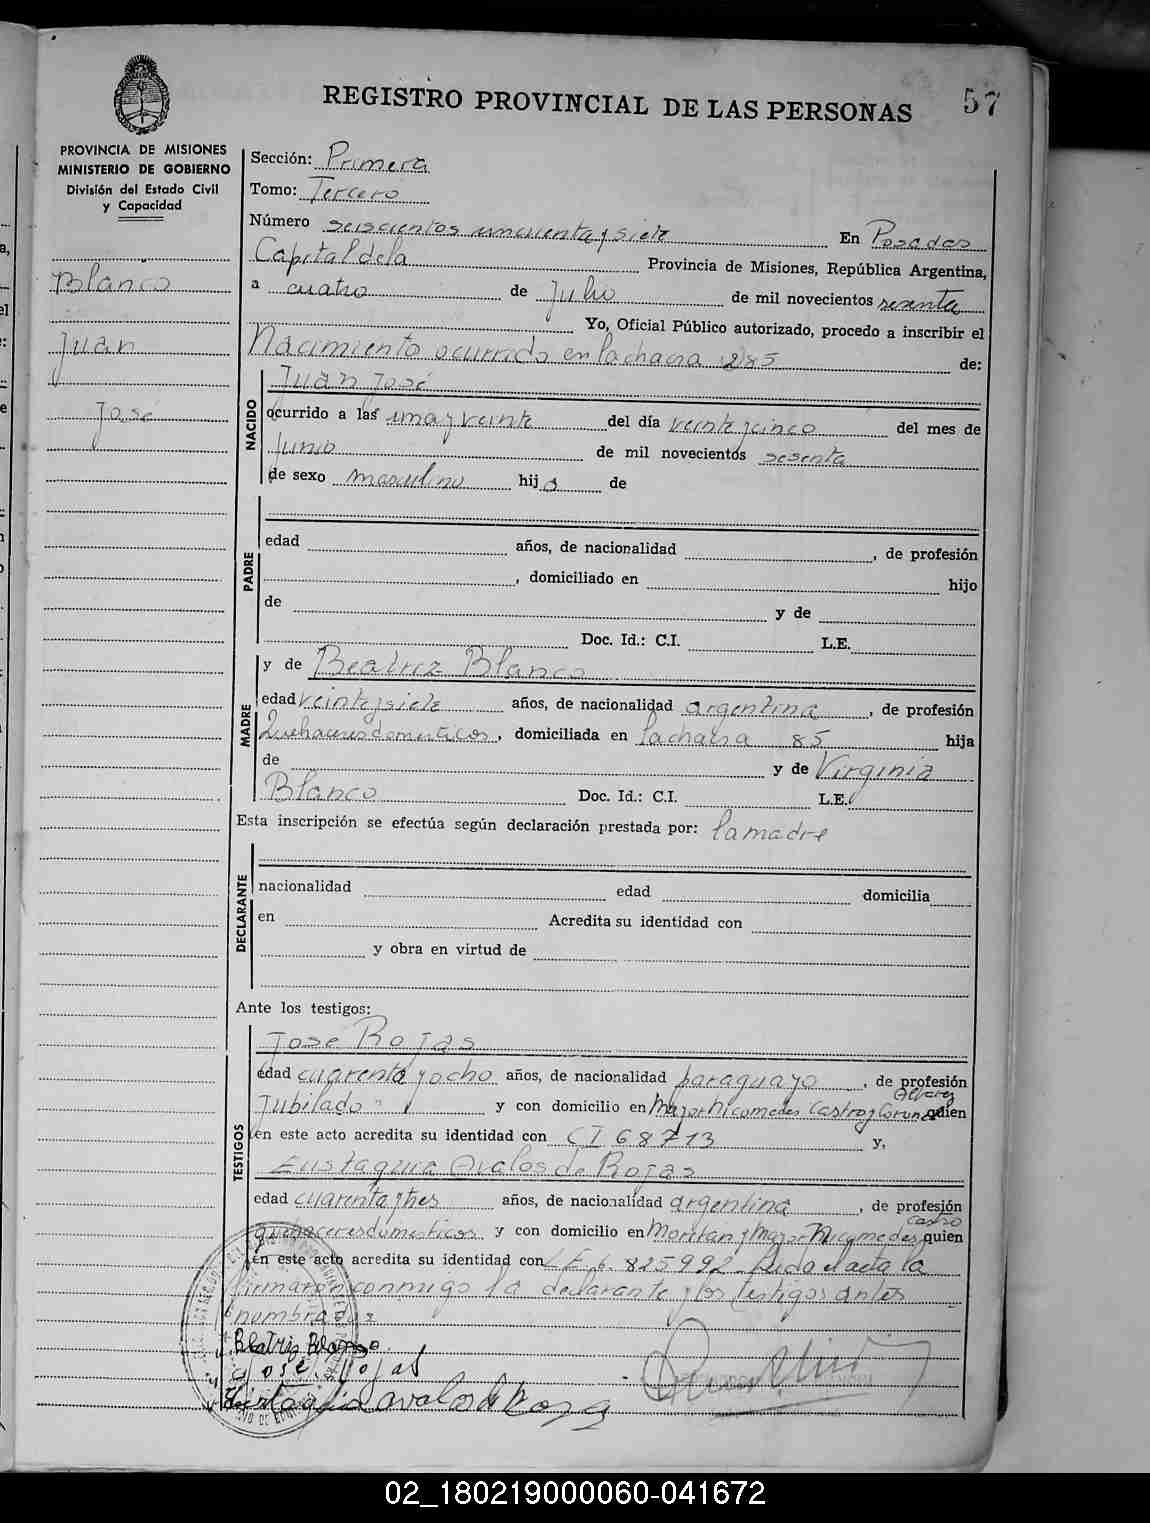 57
REGISTRO PROVINCIAL DE LAS PERSONAS
PROVINCIA DE MISIONES
MINISTERIO DE GOBIERNO
División del Estado Civil
y Capacidad
Blanco
Juan
José
Sección: Primera
Tomo: Tercero
Número seiscientos cincuenta y siete En Posadas
Capital de la Provincia de Misiones, República Argentina,
a cuatro de Julio de mil novecientos sesenta
Yo, Oficial Público autorizado, procedo a inscribir el
Nacimiento ocurrido en la chacra 85 de:
NACIDO
Juan José
ocurrido a las una y veinte del día veinte y cinco del mes de
Junio de mil novecientos sesenta
de sexo masculino hijo de
PADRE
edad años, de nacionalidad , de profesión
, domiciliado en hijo
de y de
Doc. Id.: C.I. L.E.
MADRE
y de Beatriz Blanco
edad veinte y siete años, de nacionalidad argentina , de profesión
Quehaceres domesticos , domiciliada en la chacra 85 hija
de y de Virginia
Blanco Doc. Id.: C.I. L.E.
Esta inscripción se efectúa según declaración prestada por: la madre
DECLARANTE
nacionalidad edad domicilia
en Acredita su identidad con
y obra en virtud de
Ante los testigos:
TESTIGOS
Jose Rojas
edad cuarenta y ocho años, de nacionalidad paraguayo , de profesión
Alvarez
Jubilado y con domicilio en Mayor Nicomedes Castro y quien
en este acto acredita su identidad con C I 68713 y,
Eustaquia Avalos de Rojas
edad cuarenta y tres años, de nacionalidad argentina , de profesión
Castro
quehaceres domesticos y con domicilio en y Mayor Nicomedes quien
en este acto acredita su identidad con L E 6.825992 Leida el acta la
firmaron conmigo la declarante y los testigos antes
nombrados
Beatriz Blanco
Jose Rojas
Eustaquia avalos de Rojas
02_180219000060-041672